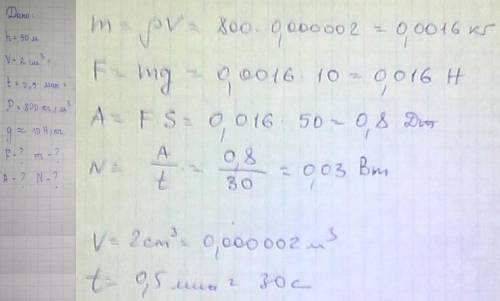 Дано:
h = 50 м
V = 2 cm³ =
t = 0,5 мин =
ρ = 800 кг/м³
g ≈ 10 Н/кг
F - ? m - ?
A - ? N - ?
m = ρV = 800 · 0,000002 = 0,0016 кг
F = mg = 0,0016 · 10 = 0,016 Н
A = F S = 0,016 · 50 = 0,8 Дж
N = A/t = 0,8/30 = 0,03 Вт
V = 2 cm³ = 0,000002 м³
t = 0,5 мин = 30 с